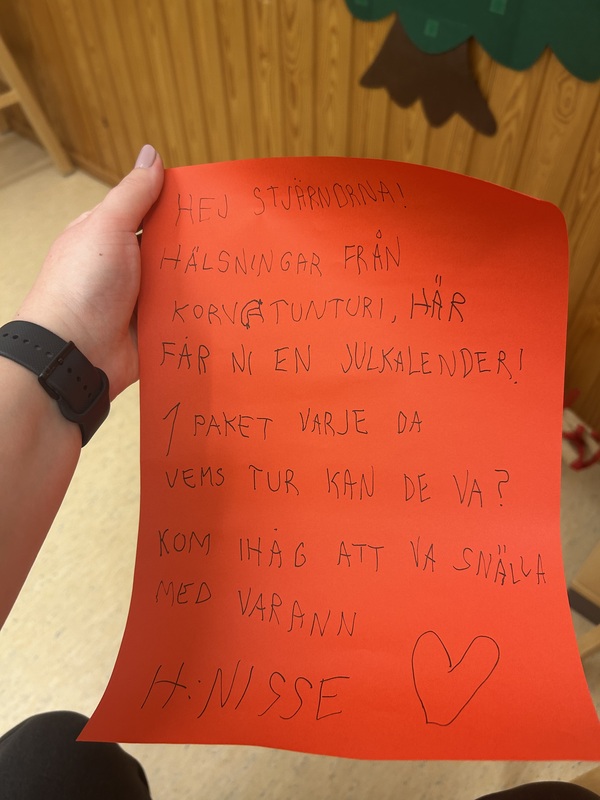 HEJ STJÄRNORNA!
HÄLSNINGAR FRÅN
KORVATUNTURI, HÄR
FÅR NI EN JULKALENDER!
1 PAKET VARJE DA
VEMS TUR KAN DE VA?
KOM IHÅG ATT VA SNÄLLA
MED VARANN
H:NISSE